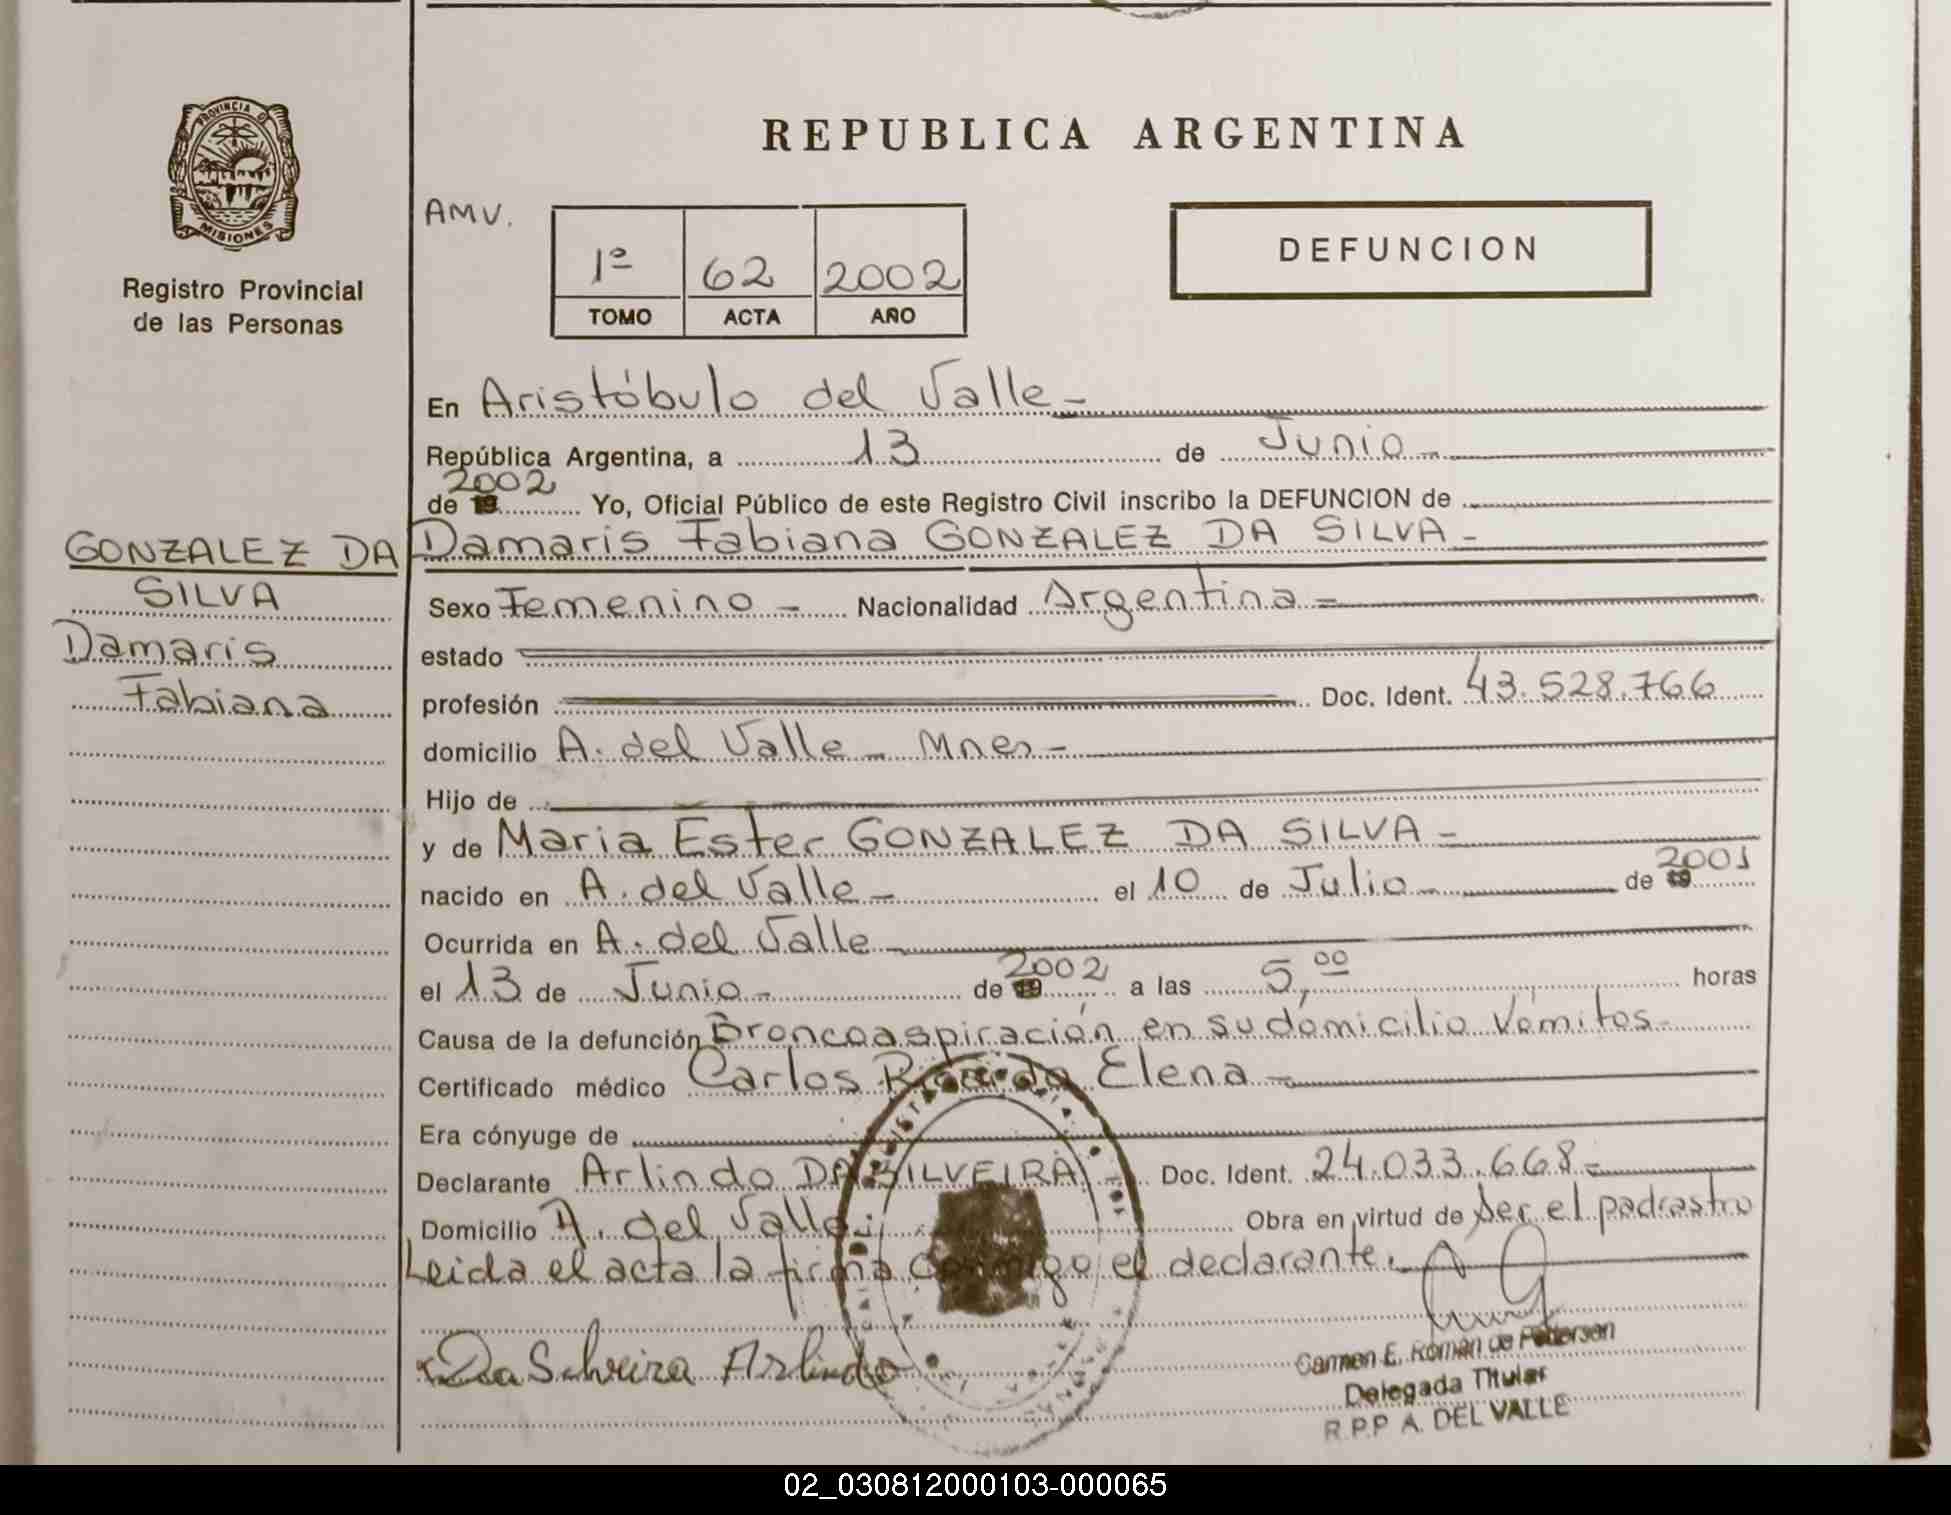 PROVINCIA DE
MISIONES
Registro Provincial
de las Personas
REPUBLICA ARGENTINA
AMV.
1º 62 2002
TOMO ACTA AÑO
DEFUNCION
En Aristóbulo del Valle-
República Argentina, a 13 de Junio-
de 19 2002 Yo, Oficial Público de este Registro Civil inscribo la DEFUNCION de
Damaris Fabiana GONZALEZ DA SILVA-
GONZALEZ DA
SILVA
Damaris
Fabiana
Sexo Femenino- Nacionalidad Argentina-
estado
profesión Doc. Ident. 43.528.766
domicilio A. del Valle- Mnes-
Hijo de
y de Maria Ester GONZALEZ DA SILVA-
nacido en A. del Valle- el 10 de Julio- de 19 2001
Ocurrida en A. del Valle-
el 13 de Junio- de 19 2002 a las 5,00 horas
Causa de la defunción Broncoaspiración en su domicilio Vómitos-
Certificado médico Carlos Ricardo Elena-
Era cónyuge de
Declarante Arlindo DA SILVEIRA- Doc. Ident. 24.033.668-
Domicilio A. del Valle- Obra en virtud de ser el padrastro
Leida el acta la firma conmigo el declarante.
Da Silveira Arlindo
Carmen E. Román de Pettersen
Delegada Titular
R.P.P A. DEL VALLE
02_030812000103-000065